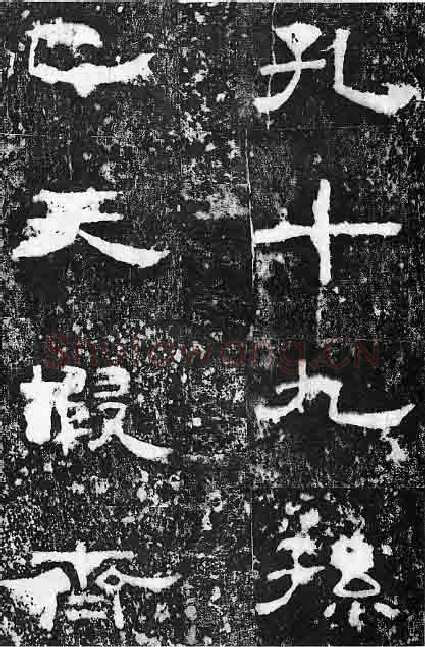 孔十九孫
也天嘏齊
Shufawang.CN